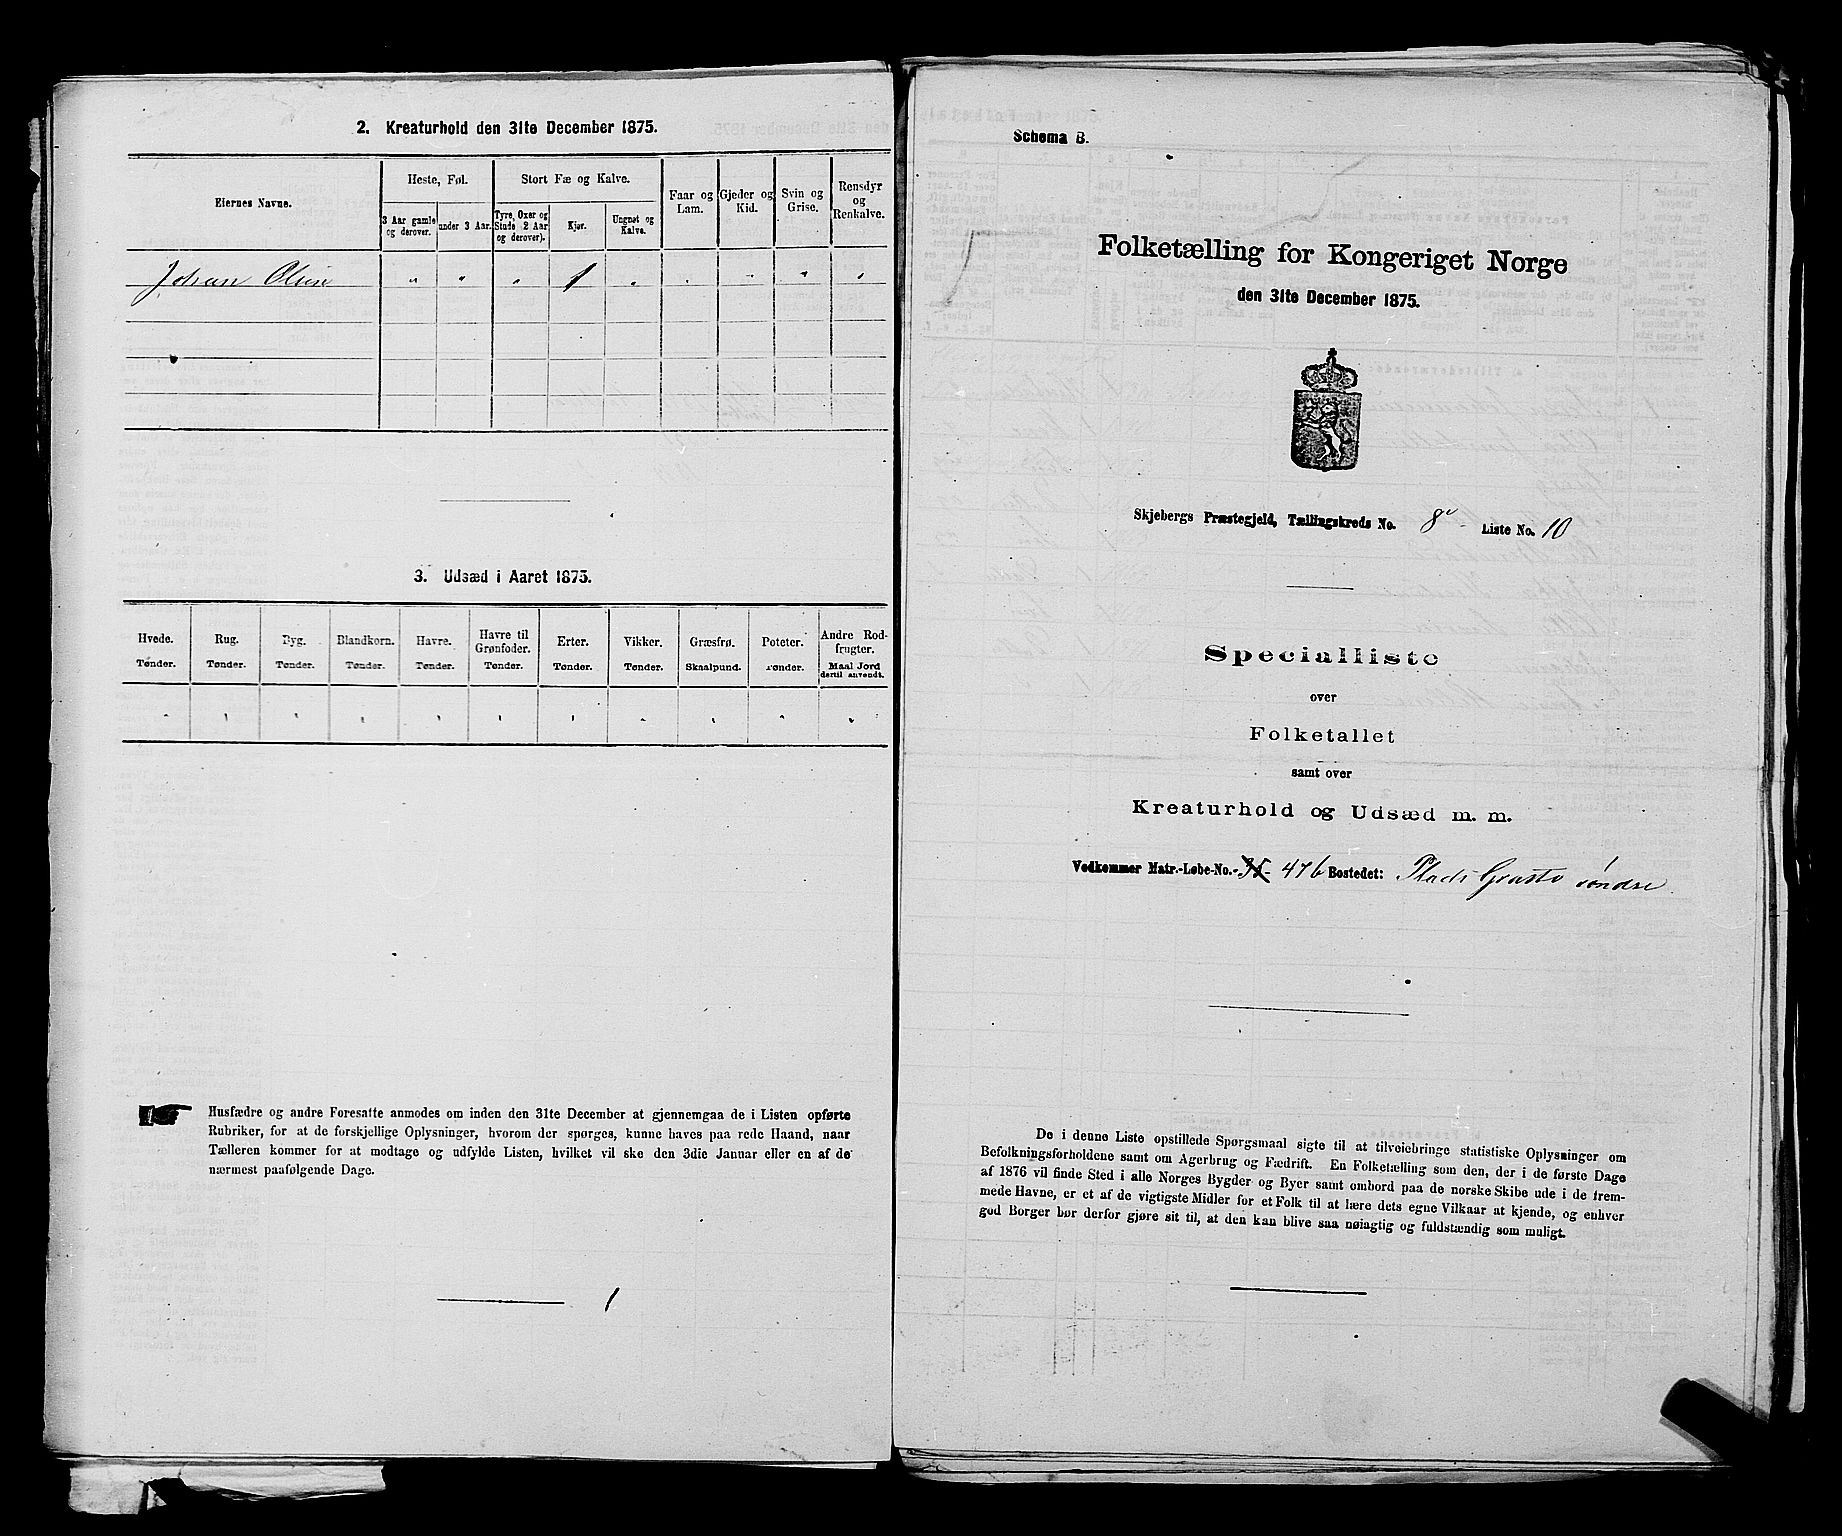 2. Kreaturhold den 31te December 1875.
Eiernes Navne.
Heste, Føl.
3 Aar gamle og derover.
under 3 Aar.
Stort Fæ og Kalve.
Tyre, Oxer og Stude 2 Aar og derover).
Kjør.
Ungnøt og Kalve.
Faar og Lam.
Gjeder og Kid.
Svin og Grise.
Rensdyr og Renkalve.
Johan Olsen " " " 1 " " " " "
3. Udsæd i Aaret 1875.
Hvede. Tønder.
Rug. Tønder.
Byg. Tønder.
Blandkorn. Tønder.
Havre. Tønder.
Havre til Grønfoder. Tønder.
Erter. Tønder.
Vikker. Tønder.
Græsfrø. Skaalpund.
Poteter. Tønder.
Andre Rodfrugter. Maal Jord dertil anvendt.
Husfædre og andre Foresatte anmodes om inden den 31te December at gjennemgaa de i Listen opførte
Rubriker, for at de forskjellige Oplysninger, hvorom der spørges, kunne haves paa rede Haand, naar
Tælleren kommer for at modtage og udfylde Listen, hvilket vil ske den 3die Januar eller en af de
nærmest paafølgende Dage.
1
Schema B.
Folketælling for Kongeriget Norge
den 31te December 1875.
Skjebergs Præstegjeld, Tællingskreds No. 8 Liste No. 10
Specialliste
over
Folketallet
samt over
Kreaturhold og Udsæd m. m.
Vedkommer Matr.-Løbe-No. 47b Bostedet: Plads Grasto søndre
De i denne Liste opstillede Spørgsmaal sigte til at tilveiebringe statistiske Oplysninger om
Befolkningsforholdene samt om Agerbrug og Fædrift. En Folketælling som den, der i de første Dage
af 1876 vil finde Sted i alle Norges Bygder og Byer samt ombord paa de norske Skibe ude i de frem-
mede Havne, er et af de vigtigste Midler for et Folk til at lære dets egne Vilkaar at kjende, og enhver
god Borger bør derfor gjøre sit til, at den kan blive saa nøiagtig og fuldstændig som muligt.